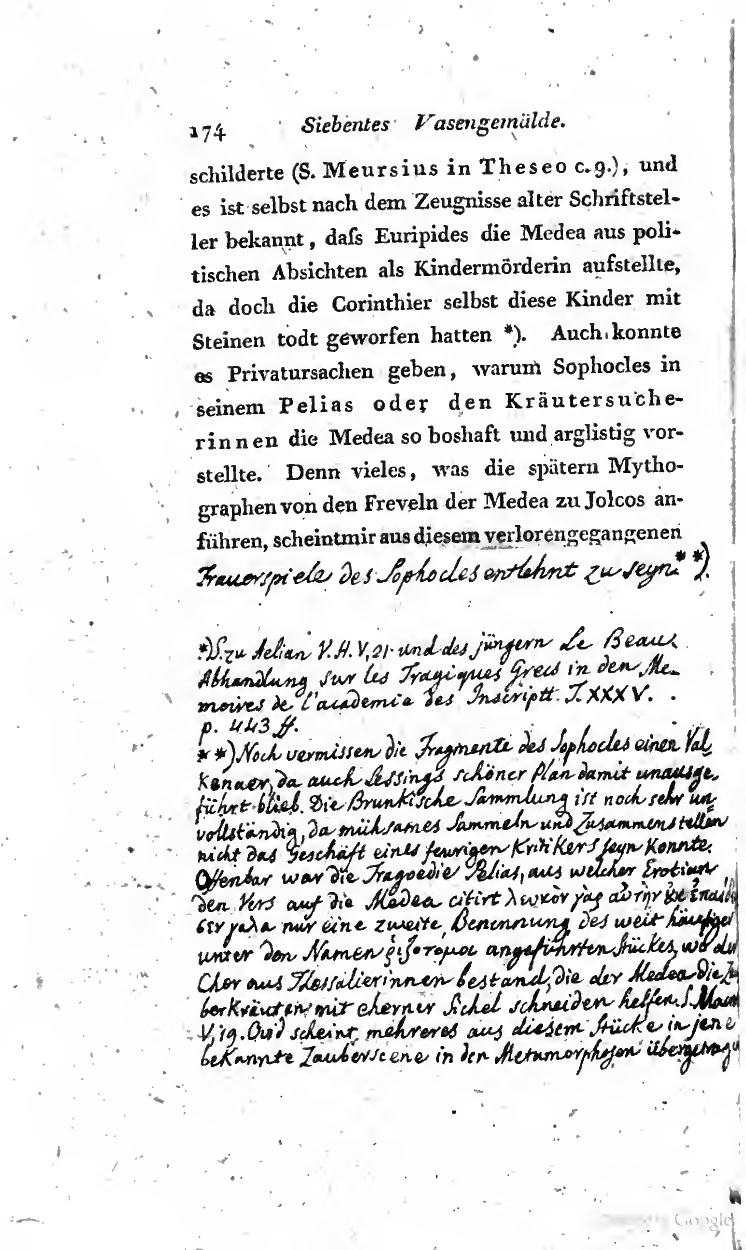 174 Siebentes Vasengemälde.
schilderte (S. Meursius in Theseo c. 9.), und
es ist selbst nach dem Zeugnisse alter Schriftstel-
ler bekannt, daſs Euripides die Medea aus poli-
tischen Absichten als Kindermörderin aufstellte,
da doch die Corinthier selbst diese Kinder mit
Steinen todt geworfen hatten *). Auch konnte
es Privatursachen geben, warum Sophocles in
seinem Pelias oder den Kräutersuche-
rinnen die Medea so boshaft und arglistig vor-
stellte. Denn vieles, was die spätern Mytho-
graphen von den Freveln der Medea zu Jolcos an-
führen, scheint mir aus diesem verlorengegangenen
Trauerspiele des Sophocles entlehnt zu seyn **).
*) S. zu Aelian V. H. V, 21. und des jüngern Le Beau
Abhandlung sur les Tragiques Grecs in den Me-
moires de l'academie des Inscriptt. T. XXXV.
p. 443 ff.
**) Noch vermissen die Fragmente des Sophocles einen Val-
kenaer, da auch Lessings schöner Plan damit unausge-
führt blieb. Die Brunkische Sammlung ist noch sehr un-
vollständig, da mühsames Sammeln und Zusammenstellen
nicht das Geschäft eines feurigen Kritikers seyn konnte.
Offenbar war die Tragoedie Pelias, aus welcher Erotian
den Vers auf die Medea citirt λευκὸν γὰρ αὐτὴν
γαλα nur eine zweite Benennung des weit häufiger
unter den Namen ριζοτομοι angeführten Stückes, wo der
Chor aus Thessalierinnen bestand, die der Medea die Zau-
berkräuter mit eherner Sichel schneiden helfen. S. Macro
V, 19. Ovid scheint mehreres aus diesem Stücke in jene
bekannte Zauberscene in den Metamorphosen übergetrag
Google